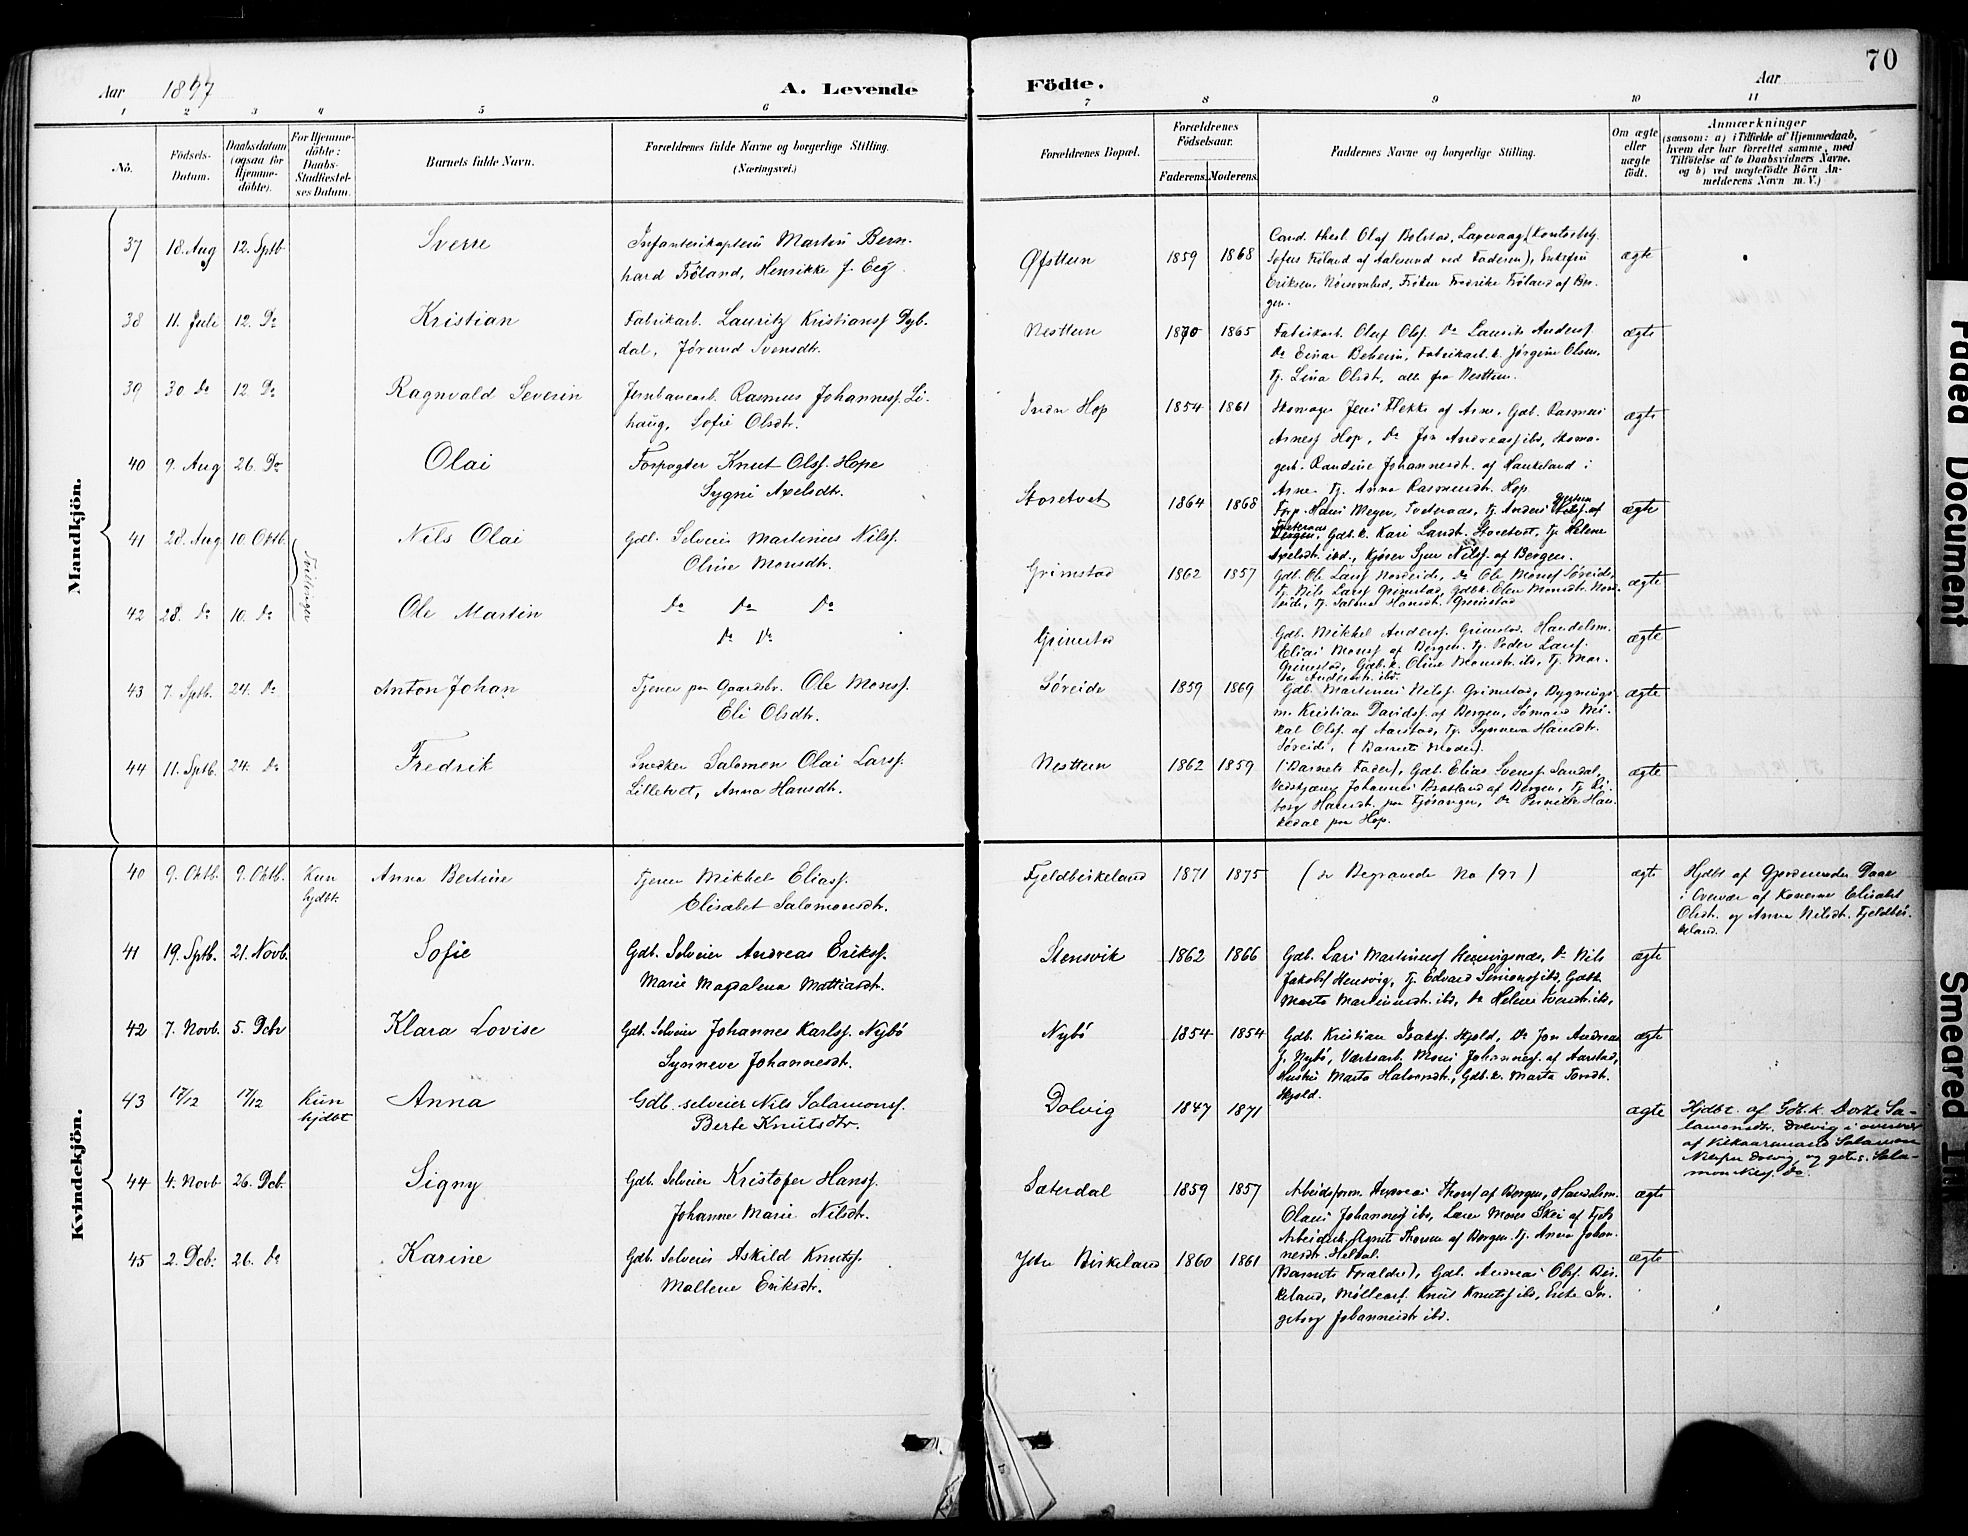 70
Aar 1897 A. Levende Födte. Aar
1 2 3 4 5 6 7 8 9 10 11
No. Födsels-Datum. Daabsdatum (ogsaa for Hjemmedöbte). For Hjemmedöbte: Daabs-Stadfæstelses Datum. Barnets fulde Navn. Forældrenes fulde Navne og borgerlige Stilling. (Næringsvei.) Forældrenes Bopæl. Forældrenes Födselsaar. Faderens. Moderens. Faddernes Navne og borgerlige Stilling. Om ægte eller uægte födt. Anmærkninger (saasom: a) i Tilfælde af Hjemmedaab, hvem der har forrettet samme, med Tilföielse af to Daabsvidners Navne. og b) ved uægtefödte Börn Anmelderens Navn m. V.)
Mandkjön.
37 18. Aug 12. Sptb. Sverre Infanterikaptein Martin Bern-
hard Fröland, Henrikke J. Eeg. Øfsttun 1859 1868 ægte
Cand. theol. Olaf Bolstad, Laxevaag, Kontorbetj.
Sofus Fröland af Aalesund ved Faderen), Enkefru
Eriksen, Nörsernhed, Fröken Fredrike Fröland af Ber-
gen.
38 11. Juli 12. Do Kristian Fabrikarb. Lauritz Kristiansf. Dyb-
dal, Jørund Svensdtr. Nesttun 1870 1865 ægte
Fabrikarb. Oluf Olsf. Do Laurits Andersf.
Do Einar Beheim, Fabrikarb.k. Jørgine Olsen,
Tj. Lina Olsdt, alle fra Nesttun.
39 30 Do 12. Do Ragnvald Severin Jernbanearb. Rasmus Johannesf. Li-
haug, Sofie Olsdtr. Indre Hop 1854 1861 ægte
Skomager Jens Flekke af Arne, Gdb. Rasmus
Arnesf Hop, Do Jon Andreasf ibd, Skoma-
gerk. Randine Johannesdt. af Haukeland i
Arne. Tj. Anna Rasmusdt. Hop.
40 9. Aug 26. Do Olai Forpagter Knut Olsf. Hope
Sygni Axelsdtr. Storetvet 1864 1868 ægte
Forp. Hans Meyer, Tveteraas, Tj. Anders Nilsf. af
Bergen, Gdb. k. Kari Landt. Storetvet, Tj. Helene
Axelsdt. ibd., Kjører Sjur Nilsf. af Bergen.
41 28. Aug 10. Oktb. Tvillinger Nils Olai Gdb. Selveier Martinus Nilsf.
Oline Monsdtr. Grimstad 1862 1857 ægte
Gdb. Ole Larsf Nordeide, Do Ole Monsf Søreide,
Tj. Nils Larsf Grimstad, Gdbk. Elen Monsdtr. Nord-
eide, Tj. Salma Hansdt. Grimstad
42 28. Do 10. Do Ole Martin Do Do Do
Do Do Grimstad ægte
Gdb. Mikkel Andersf. Grimstad. Handelsm.
Elias Monsf af Bergen. Tj. Peder Larsf.
Grimstad, Gdb.k. Oline Monsdtr. ibd, Tj. Mar-
ta Andersdt. ibd.
43 7. Sptb. 24. Do Anton Johan Tjener paa Gaardsbr. Ole Monsf.
Eli Olsdtr. Søreide 1859 1869 ægte
Gdb. Martinus Nilsf. Grimstad, Bygnings-
m. Kristian Davidsf. af Bergen, Sømand Mi-
kal Olsf. af Aarstad, Tj. Synneva Hansdtr.
Søreide, (Barnets Moder).
44 11. Sptb. 24. Do Fredrik Snedker Salomon Olai Larsf.
Lilletvet, Anna Hansdt. Nesttun 1862 1859 ægte
(Barnets Fader), Gdb. Elias Svensf Sandal,
Vedskjærer Johannes Bratland af Bergen, Tj. Li-
borg Hansdt. paa Fjøsanger, Do Pernille Hau-
kedal paa Hop.
Kvindekjön.
40 9. Oktb. 9. Oktb. Kun
hjdbt. Anna Bertine Tjener Mikkel Eliasf.
Elisabet Salomonsdtr. Fjeldbirkeland 1871 1875 (se Begravede No 197) ægte
Hjdbt af Gjordemoder Daae
i Overvær af Konerne Elisabet
Olsdt. og Anna Nilsdt. Fjeldbir-
keland.
41 19. Sptb. 21. Novb. Sofie Gdb. Selveier Andreas Eriksf.
Marie Magdalena Mattiasdt. Stensvik 1862 1866 ægte
Gdb. Lars Martinusf Hensvignæs, Do Nils
Jakobsf Hensvig, Tj. Edvard Simonsf ibd, Gdbk.
Marta Martinusdt. ibd, Do Helene Svendt. ibd,
42 7. Novb. 5. Dcbr Klara Lovise Gdb. Selveier Johannes Karlsf. Nybö
Synneve Johannesdt. Nybö 1854 1854 ægte
Gdb. Kristian Isaksf. Skjold, Do Jon Andreas-
f. Nybö, Værksarb. Mons Johannesf. af Aarstad,
Hustru Marta Halvordt., Gdb.k. Marta Torsdt.
Skjold.
43 17/12 17/12 Kun
hjdbt Anna Gdb. selveier Nils Salamonsf.
Berte Knutsdtr. Dolvig 1847 1871 ægte
Hjdbt. af Gdb.k. Dorte Sa-
lamonsdtr. Dolvig i overvær
af Vilkaarsmand Salamon
Nilsen Dolvig og gdb.s. Sala-
mon Nilsf. Do.
44 4. Novb 26. Dcb. Signy Gdb. Selveier Kristofer Hansf.
Johanne Marie Nilsdt. Sæterdal 1859 1857 ægte
Arbeidsform. Andreas Thorsf af Bergen, Handelsm.
Olaus Johannesf ibd, Lærer Mons Skei af Fjeld
Arbeidsk. Agnet Thorsen af Bergen. Tj. Anna Johan-
nesdt. Heldal.
45 2. Dcb. 26. Do Karine Gdb. Selveier Askild Knutsf.
Mallene Eriksdtr. Ytre Birkeland 1860 1861 ægte
(Barnets Forældre), Gdb. Andreas Olsf. Bir-
keland, Møllearb. Knut Knutsf ibd, Enke In-
geborg Johannesdt ibd.
Faded Document
Smeared Ink